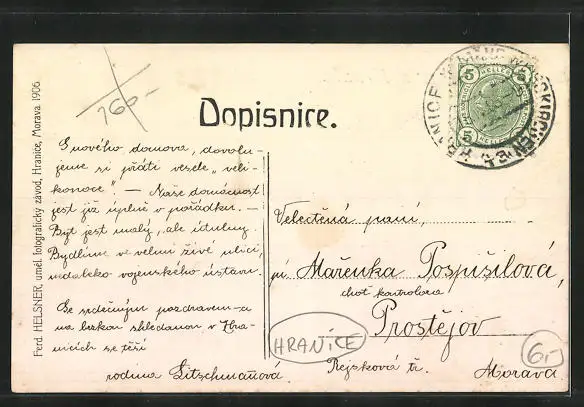 160.-
Dopisnice.
5 HELLER 5
HRANICE MÄHR. WEISSKIRCHEN
Ferd. HELSNER, uměl. fotografický závod, Hranice, Morava 1906
S nového domova, dovolu-
jeme si přáti veselé „veli-
konoce". — Naše domácnost
jest již úplně v pořádku. —
Byt jest malý, ale útulný.
Bydlíme ve velmi živé ulici,
nedaleko vojenského ústavu.
Se srdečným pozdravem a
na brzkou shledanou v Hra-
nicích se těší
rodina Litschmannová.
Velectěná paní,
pí Mařenka Pospíšilová,
choť kontrolora
Prostějov
Rejskova tř.
Morava.
HRANICE
6.-